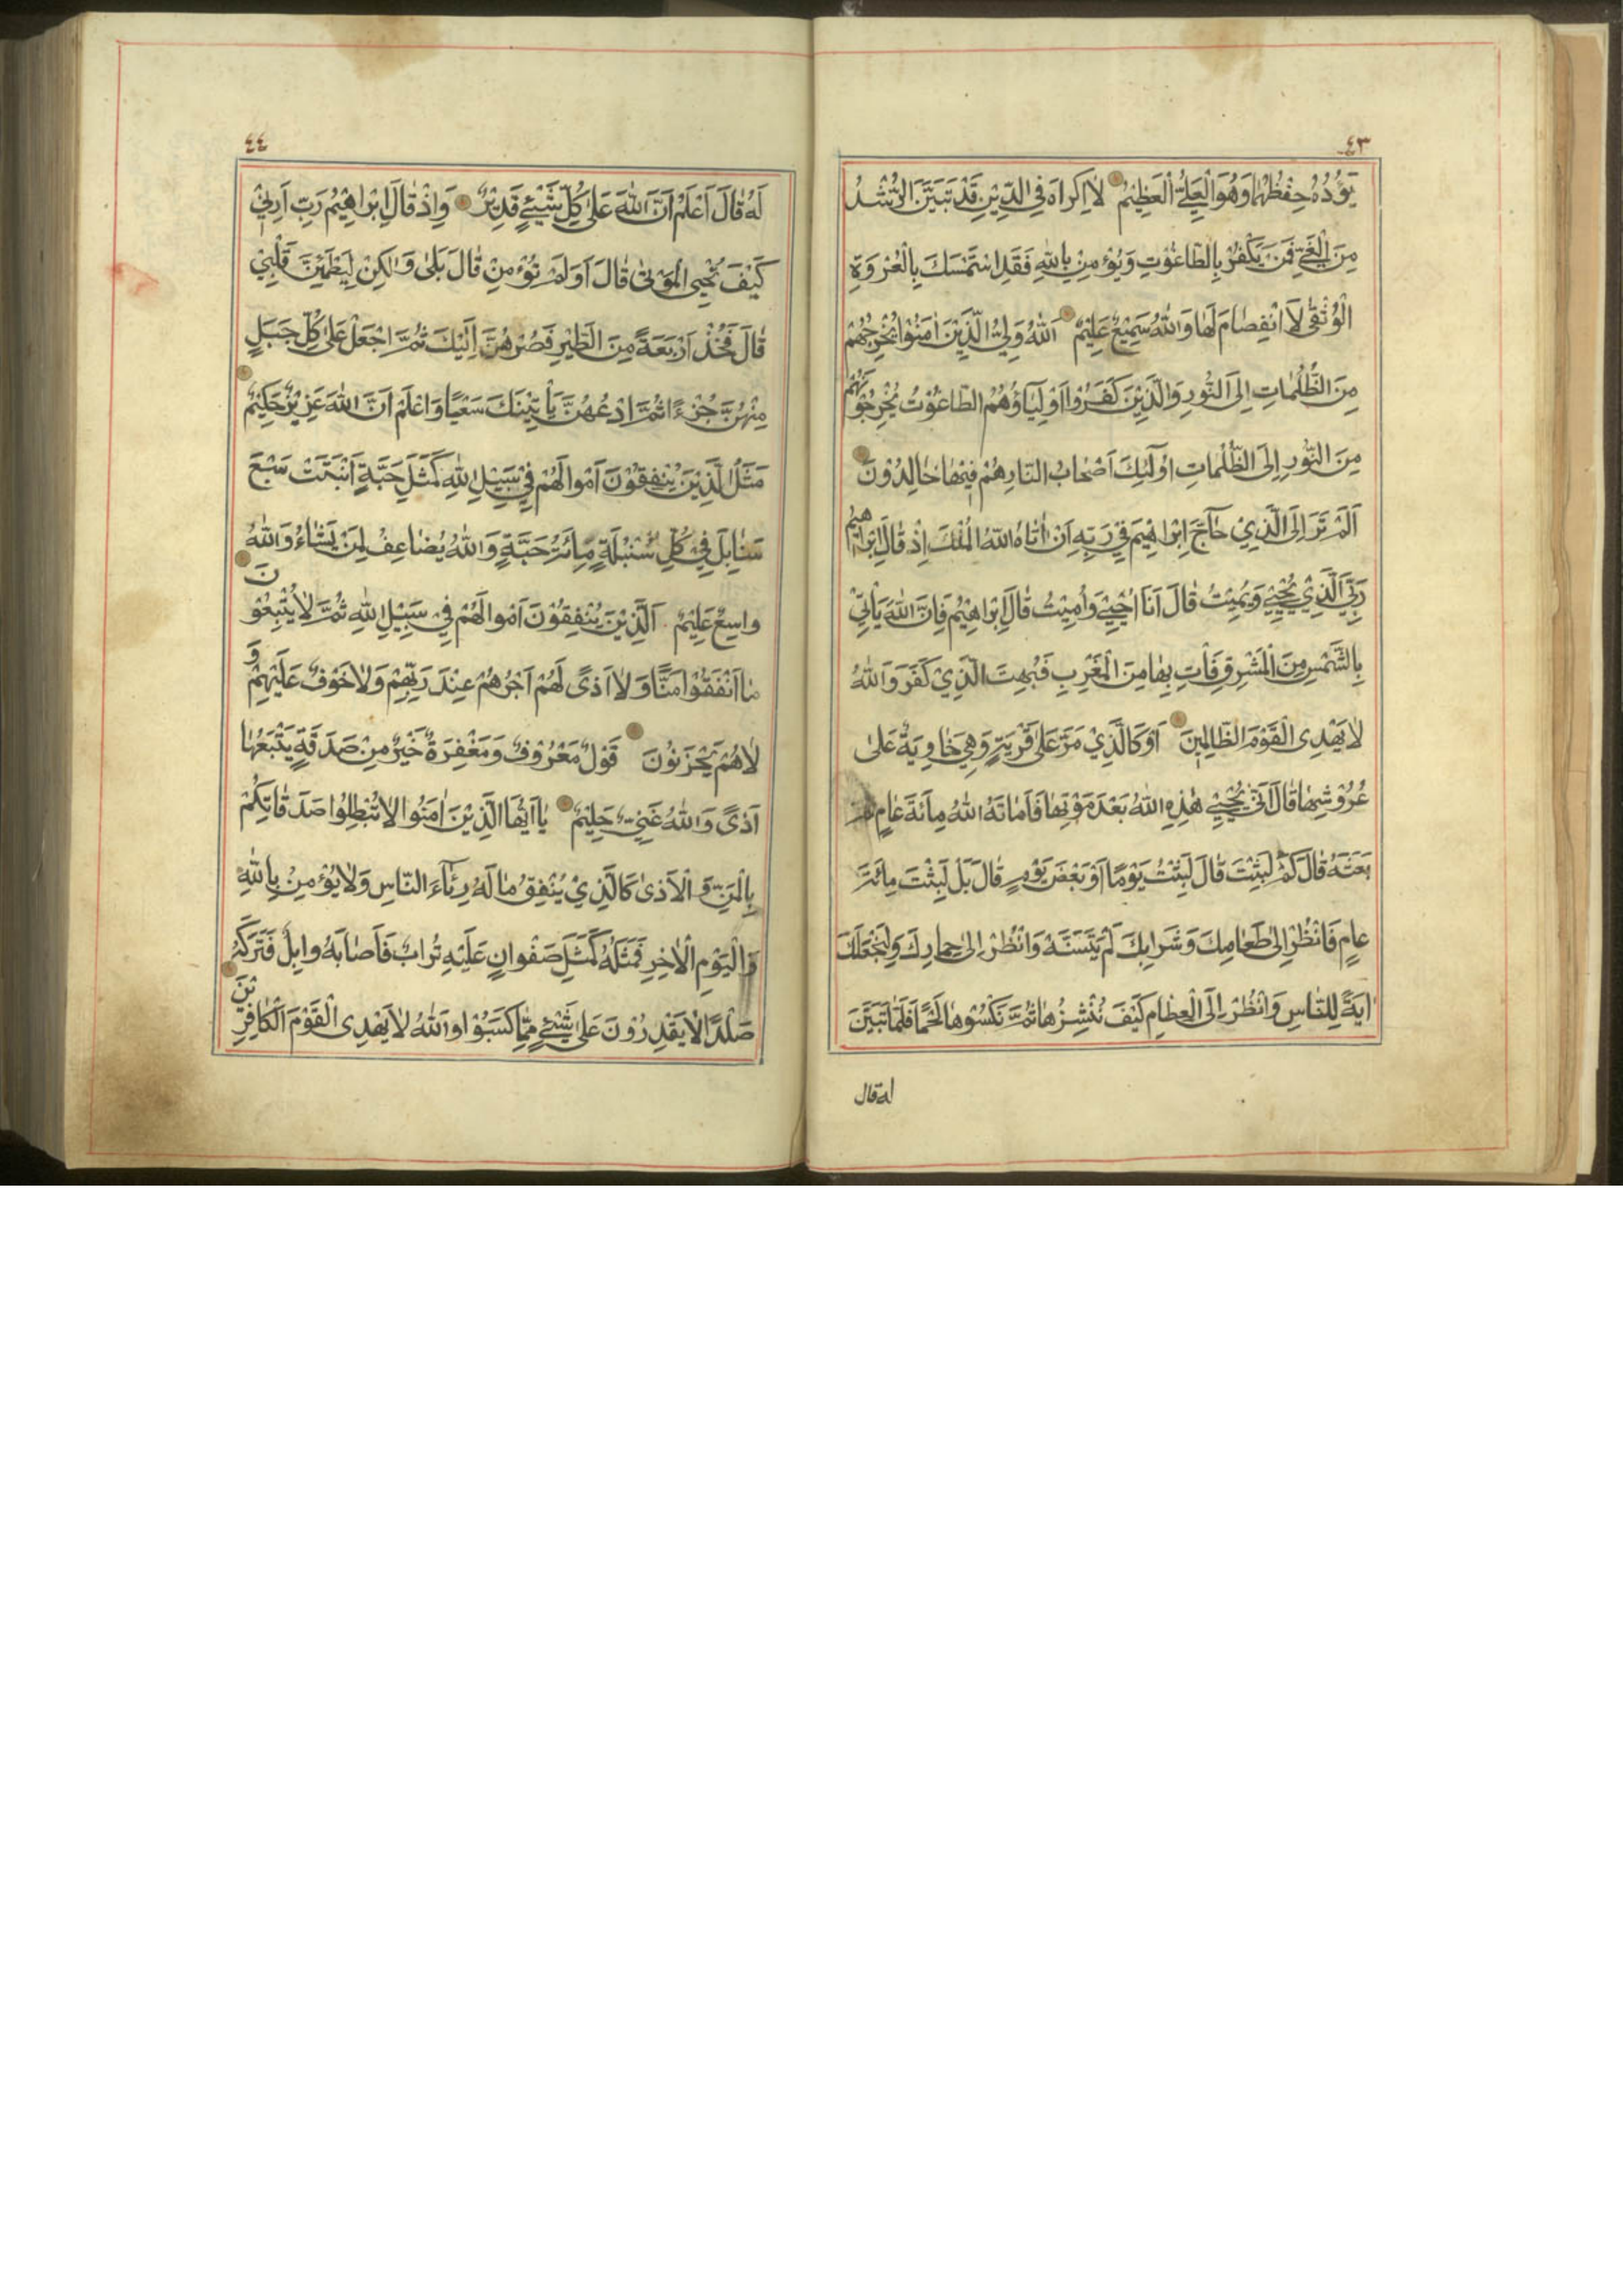 ٤٣
يَؤُدُهُ حِفْظُهُمَا وَهُوَ الْعَلِيُّ الْعَظِيْمُ لَا اِكْرَاهَ فِي الدِّيْنِ قَدْ تَبَيَّنَ الرُّشْدُ
مِنَ الْغَيِّ فَمَنْ يَكْفُرْ بِالطَّاغُوْتِ وَيُؤْمِنْ بِاللّٰهِ فَقَدِ اسْتَمْسَكَ بِالْعُرْوَةِ
الْوُثْقٰى لَا انْفِصَامَ لَهَا وَاللّٰهُ سَمِيْعٌ عَلِيْمٌ اَللّٰهُ وَلِيُّ الَّذِيْنَ اٰمَنُوْا يُخْرِجُهُمْ
مِنَ الظُّلُمَاتِ اِلَى النُّوْرِ وَالَّذِيْنَ كَفَرُوْا اَوْلِيَاؤُهُمُ الطَّاغُوْتُ يُخْرِجُوْنَهُمْ
مِنَ النُّوْرِ اِلَى الظُّلُمَاتِ اُولٰئِكَ اَصْحَابُ النَّارِ هُمْ فِيْهَا خَالِدُوْنَ
اَلَمْ تَرَ اِلَى الَّذِيْ حَآجَّ اِبْرَاهِيْمَ فِيْ رَبِّهِ اَنْ اٰتَاهُ اللّٰهُ الْمُلْكَ اِذْ قَالَ اِبْرَاهِيْمُ
رَبِّيَ الَّذِيْ يُحْيِيْ وَيُمِيْتُ قَالَ اَنَا اُحْيِيْ وَاُمِيْتُ قَالَ اِبْرَاهِيْمُ فَاِنَّ اللّٰهَ يَأْتِيْ
بِالشَّمْسِ مِنَ الْمَشْرِقِ فَأْتِ بِهَا مِنَ الْمَغْرِبِ فَبُهِتَ الَّذِيْ كَفَرَ وَاللّٰهُ
لَا يَهْدِى الْقَوْمَ الظَّالِمِيْنَ اَوْ كَالَّذِيْ مَرَّ عَلٰى قَرْيَةٍ وَهِيَ خَاوِيَةٌ عَلٰى
عُرُوْشِهَا قَالَ اَنّٰى يُحْيِيْ هٰذِهِ اللّٰهُ بَعْدَ مَوْتِهَا فَاَمَاتَهُ اللّٰهُ مِائَةَ عَامٍ ثُمَّ
بَعَثَهُ قَالَ كَمْ لَبِثْتَ قَالَ لَبِثْتُ يَوْمًا اَوْ بَعْضَ يَوْمٍ قَالَ بَلْ لَبِثْتَ مِائَةَ
عَامٍ فَانْظُرْ اِلٰى طَعَامِكَ وَشَرَابِكَ لَمْ يَتَسَنَّهْ وَانْظُرْ اِلٰى حِمَارِكَ وَلِنَجْعَلَكَ
اٰيَةً لِلنَّاسِ وَانْظُرْ اِلَى الْعِظَامِ كَيْفَ نُنْشِزُهَا ثُمَّ نَكْسُوْهَا لَحْمًا فَلَمَّا تَبَيَّنَ
له قال
٤٤
لَهُ قَالَ اَعْلَمُ اَنَّ اللّٰهَ عَلٰى كُلِّ شَيْئٍ قَدِيْرٌ وَاِذْ قَالَ اِبْرَاهِيْمُ رَبِّ اَرِنِيْ
كَيْفَ تُحْيِى الْمَوْتٰى قَالَ اَوَلَمْ تُؤْمِنْ قَالَ بَلٰى وَلٰكِنْ لِيَطْمَئِنَّ قَلْبِيْ
قَالَ فَخُذْ اَرْبَعَةً مِنَ الطَّيْرِ فَصُرْهُنَّ اِلَيْكَ ثُمَّ اجْعَلْ عَلٰى كُلِّ جَبَلٍ
مِنْهُنَّ جُزْءًا ثُمَّ ادْعُهُنَّ يَأْتِيْنَكَ سَعْيًا وَاعْلَمْ اَنَّ اللّٰهَ عَزِيْزٌ حَكِيْمٌ
مَثَلُ الَّذِيْنَ يُنْفِقُوْنَ اَمْوَالَهُمْ فِيْ سَبِيْلِ اللّٰهِ كَمَثَلِ حَبَّةٍ اَنْبَتَتْ سَبْعَ
سَنَابِلَ فِيْ كُلِّ سُنْبُلَةٍ مِائَةُ حَبَّةٍ وَاللّٰهُ يُضَاعِفُ لِمَنْ يَشَاءُ وَاللّٰهُ
وَاسِعٌ عَلِيْمٌ اَلَّذِيْنَ يُنْفِقُوْنَ اَمْوَالَهُمْ فِيْ سَبِيْلِ اللّٰهِ ثُمَّ لَا يُتْبِعُوْنَ
مَا اَنْفَقُوْا مَنًّا وَلَا اَذًى لَهُمْ اَجْرُهُمْ عِنْدَ رَبِّهِمْ وَلَا خَوْفٌ عَلَيْهِمْ وَ
لَا هُمْ يَحْزَنُوْنَ قَوْلٌ مَعْرُوْفٌ وَمَغْفِرَةٌ خَيْرٌ مِنْ صَدَقَةٍ يَتْبَعُهَا
اَذًى وَاللّٰهُ غَنِيٌّ حَلِيْمٌ يَا اَيُّهَا الَّذِيْنَ اٰمَنُوْا لَا تُبْطِلُوْا صَدَقَاتِكُمْ
بِالْمَنِّ وَالْاَذٰى كَالَّذِيْ يُنْفِقُ مَالَهُ رِئَآءَ النَّاسِ وَلَا يُؤْمِنُ بِاللّٰهِ
وَالْيَوْمِ الْاٰخِرِ فَمَثَلُهُ كَمَثَلِ صَفْوَانٍ عَلَيْهِ تُرَابٌ فَاَصَابَهُ وَابِلٌ فَتَرَكَهُ
صَلْدًا لَا يَقْدِرُوْنَ عَلٰى شَيْئٍ مِمَّا كَسَبُوْا وَاللّٰهُ لَا يَهْدِى الْقَوْمَ الْكَافِرِيْنَ